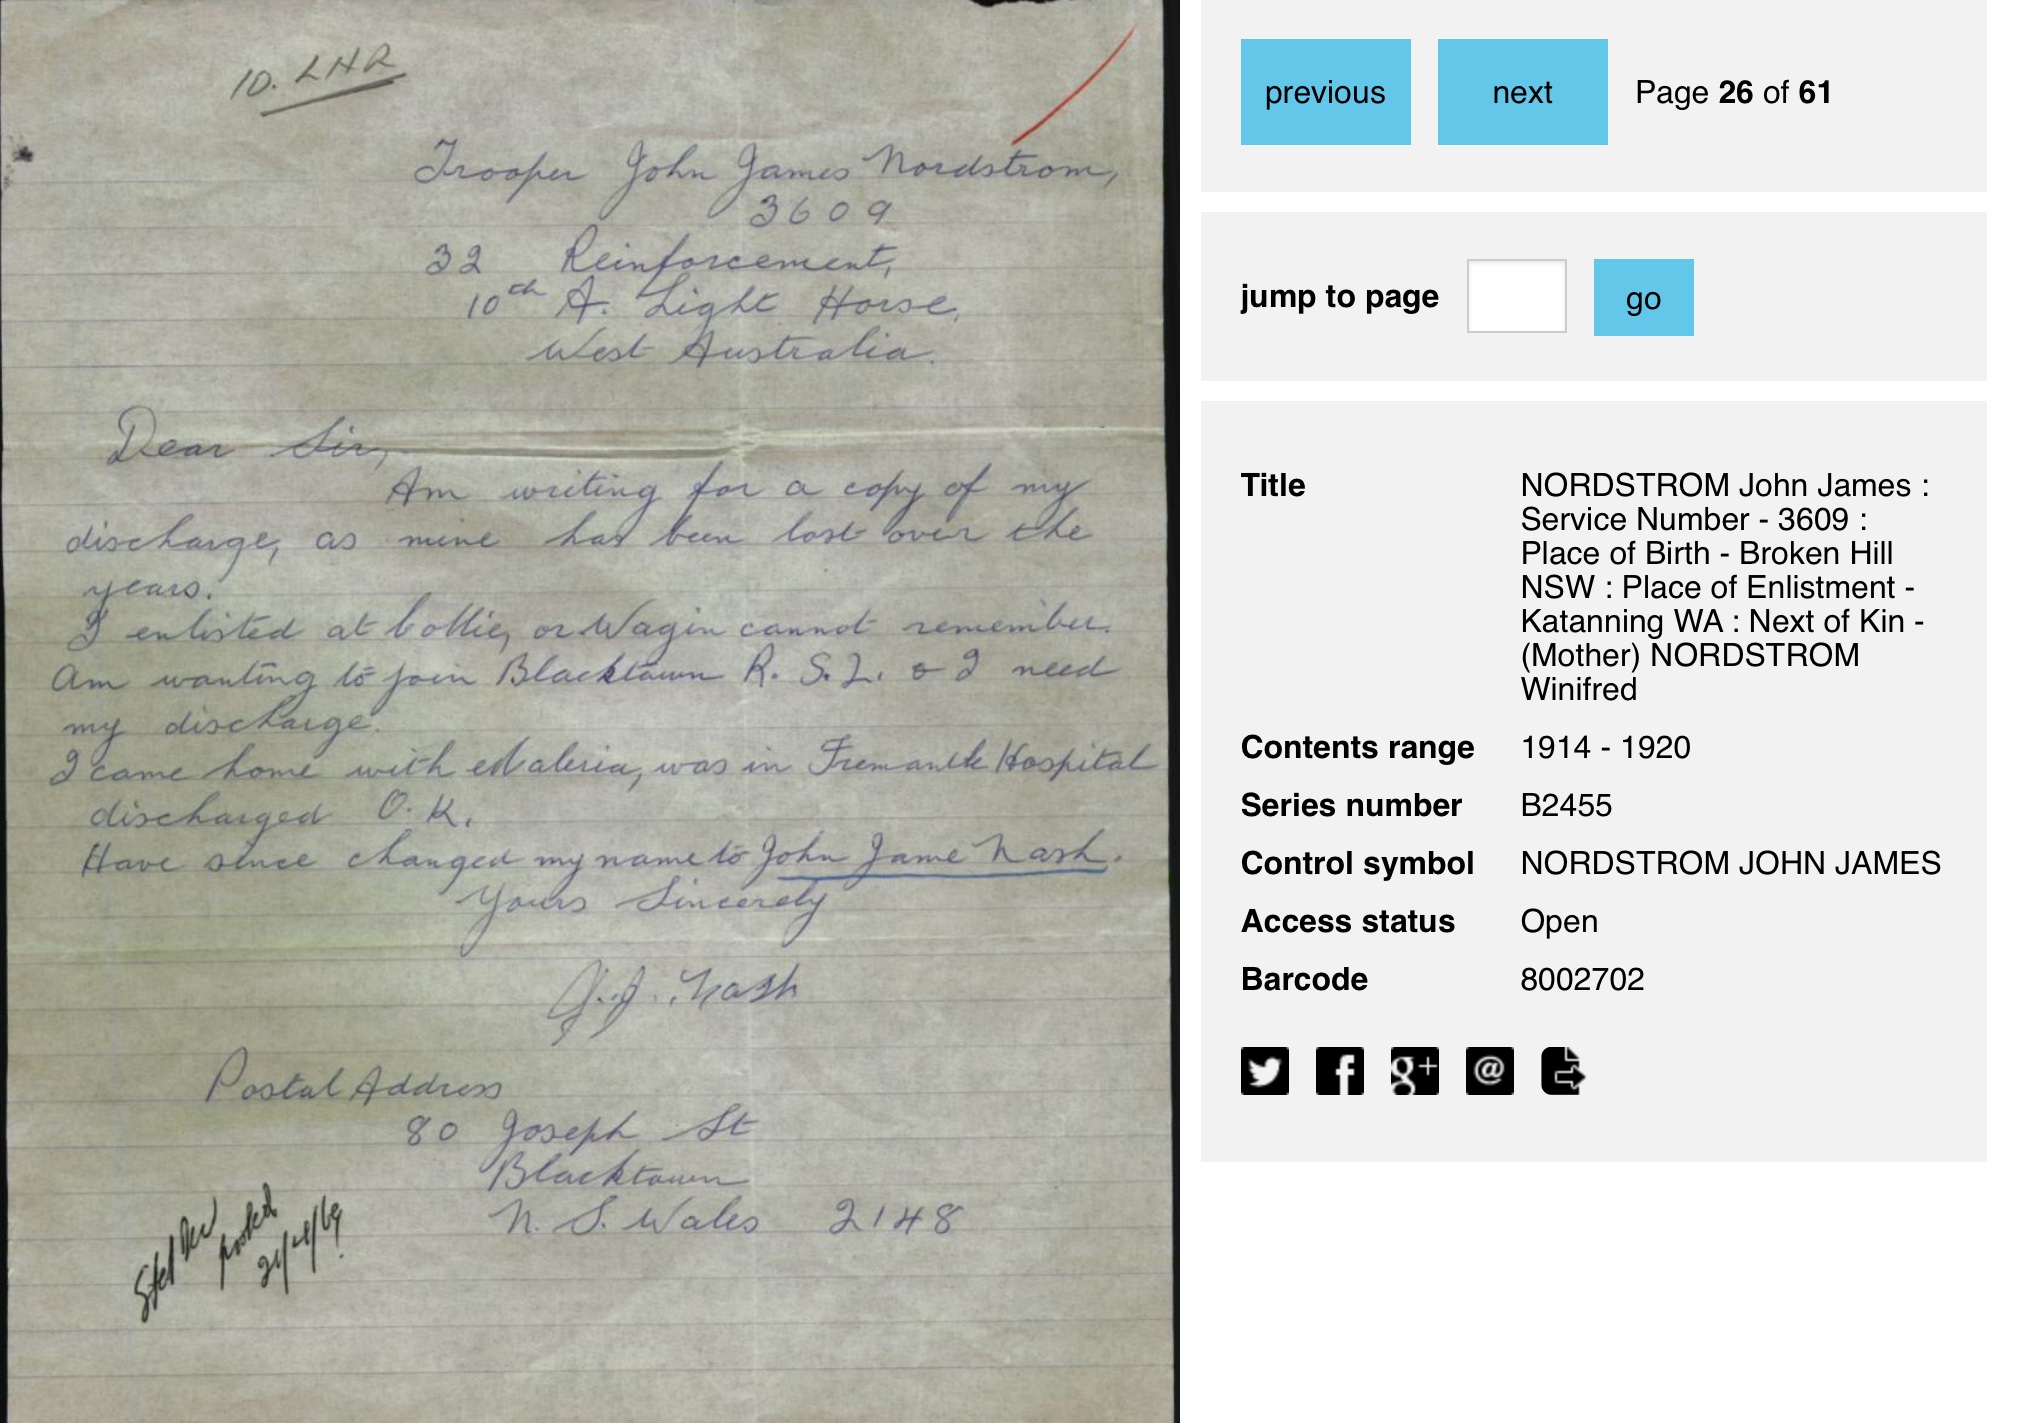 10. LHR
Trooper John James Nordstrom,
3609
32 Reinforcement,
10th A. Light Horse,
West Australia.
Dear Sir,
Am writing for a copy of my
discharge, as mine has been lost over the
years.
I enlisted at Collie, or Wagin cannot remember.
Am wanting to join Blacktown R. S. L. & I need
my discharge.
I came home with Maleria, was in Fremantle Hospital
discharged O. K.
Have since changed my name to John Jame Nash.
Yours Sincerely
J. J. Nash
Postal Address
80 Joseph St
Blacktown
N. S. Wales 2148
posted
previous
next
Page 26 of 61
jump to page
go
Title NORDSTROM John James :
Service Number - 3609 :
Place of Birth - Broken Hill
NSW : Place of Enlistment -
Katanning WA : Next of Kin -
(Mother) NORDSTROM
Winifred
Contents range 1914 - 1920
Series number B2455
Control symbol NORDSTROM JOHN JAMES
Access status Open
Barcode 8002702